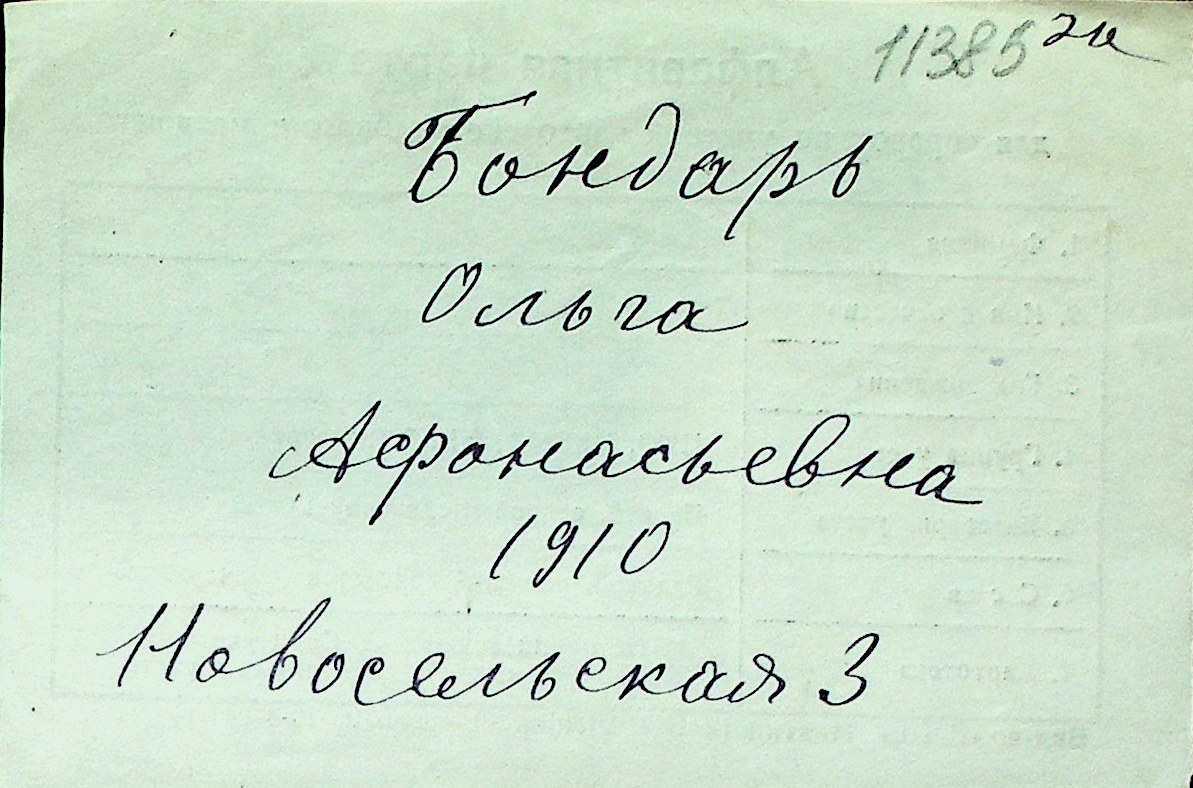 11385 эи
Бондарь
Ольга
Афонасьевна
1910
Новосельская 3